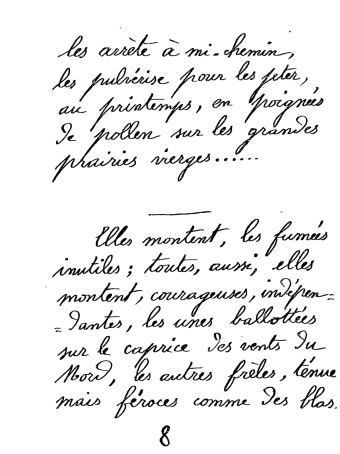 les arrête à mi-chemin,
les pulvérise pour les jeter,
au printemps, en poignées
de pollen sur les grandes
prairies vierges......
Elles montent, les fumées
inutiles ; toutes, aussi, elles
montent, courageuses, indépen=
=dantes, les unes ballottées
sur le caprice des vents du
Nord, les autres frêles, ténue
mais féroces comme des blas.
8